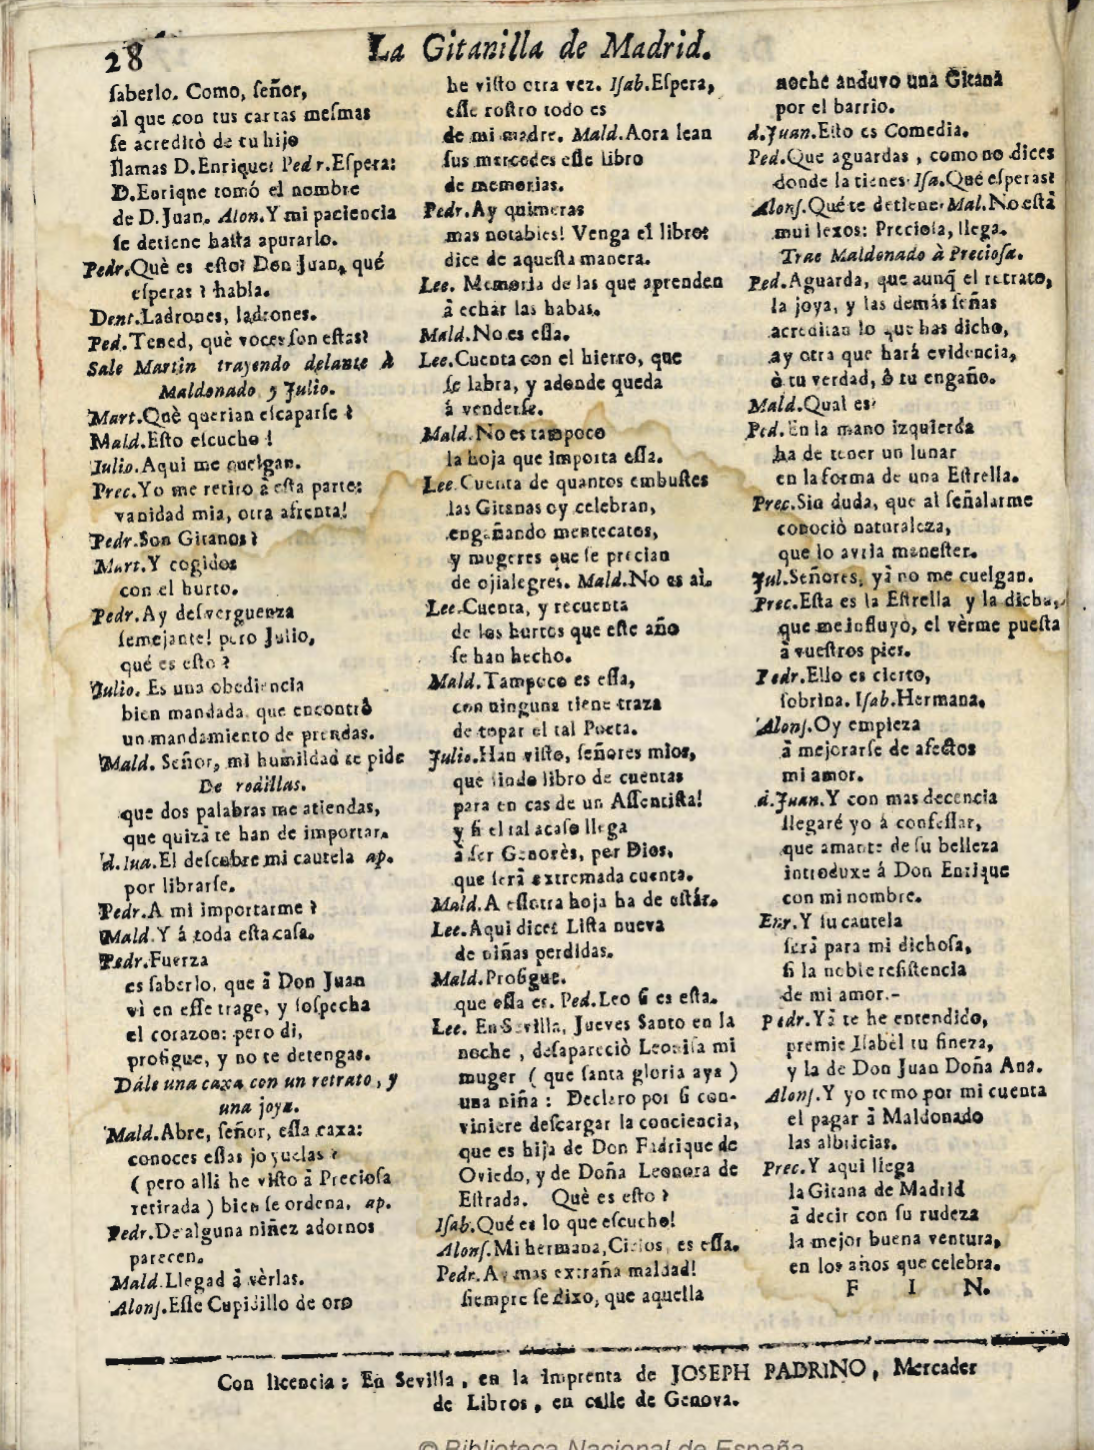 28
La Gitanilla de Madrid.
ſaberlo. Como, ſeñor,
al que con tus cartas meſmas
ſe acreditò de tu hijo
llamas D.Enrique? Pedr.Eſpera:
D.Enrique tomó el nombre
de D.Juan. Alon.Y mi paciencia
ſe detiene haſta apurarlo.
Pedr.Què es eſto? Don Juan, qué
eſperas? habla.
Dent.Ladrones, ladrones.
Ped.Tened, què voces ſon eſtas?
Sale Martin trayendo delante à
Maldonado y Julio.
Mart.Què querian eſcaparſe?
Mald.Eſto eſcucho!
Julio.Aqui me cuelgan.
Prec.Yo me retiro à eſta parte:
vanidad mia, otra afrenta!
Pedr.Son Gitanos?
Mart.Y cogidos
con el hurto.
Pedr.Ay deſverguenza
ſemejante! pero Julio,
qué es eſto?
Julio. Es una obediencia
bien mandada, que encontrò
un mandamiento de prendas.
Mald. Señor, mi humildad te pide
De rodillas.
que dos palabras me atiendas,
que quizà te han de importar.
d.Iua.El deſcubre mi cautela ap.
por librarſe.
Pedr.A mi importarme?
Mald.Y á toda eſta caſa.
Pedr.Fuerza
es ſaberlo, que à Don Juan
vì en eſſe trage, y ſoſpecha
el corazon: pero di,
proſigue, y no te detengas.
Dále una caxa con un retrato, y
una joya.
Mald.Abre, ſeñor, eſſa caxa:
conoces eſſas joyuelas?
(pero alli he viſto à Precioſa
retirada) bien ſe ordena. ap.
Pedr.De alguna niñez adornos
parecen.
Mald.Llegad à vèrlas.
Alonſ.Eſſe Cupidillo de oro
he viſto otra vez. Iſab.Eſpera,
eſſe roſtro todo es
de mi madre. Mald.Aora lean
ſus mercedes eſſe libro
de memorias.
Pedr.Ay quimeras
mas notables! Venga el libro:
dice de aqueſta manera.
Lee. Memoria de las que aprenden
à echar las habas.
Mald.No es eſſa.
Lee.Cuenta con el hierro, que
ſe labra, y adonde queda
á venderſe.
Mald.No es tampoco
la hoja que importa eſſa.
Lee.Cuenta de quantos embuſtes
las Gitanas oy celebran,
engañando mentecatos,
y mugeres que ſe precian
de ojialegres. Mald.No es aì.
Lee.Cuenta, y recuenta
de los hurtos que eſte año
ſe han hecho.
Mald.Tampoco es eſſa,
con ninguna tiene traza
de topar el tal Poeta.
Julio.Han viſto, ſeñores mios,
que lindo libro de cuentas
para en cas de un Aſſentiſta!
y ſi el tal acaſo llega
à ſer Genovès, por Dios,
que ſerà extremada cuenta.
Mald.A eſſotra hoja ha de eſtár.
Lee.Aqui dice: Liſta nueva
de niñas perdidas.
Mald.Proſigue.
que eſſa es. Ped.Leo ſi es eſta.
Lee. En Sevilla, Jueves Santo en la
noche, deſapareciò Leoniſa mi
muger (que ſanta gloria aya)
una niña: Declaro por ſi con-
viniere deſcargar la conciencia,
que es hija de Don Fadrique de
Oviedo, y de Doña Leonora de
Eſtrada. Què es eſto?
Iſab.Qué es lo que eſcucho!
Alonſ.Mi hermana, Cielos, es eſſa.
Pedr.Ay mas extraña maldad!
ſiempre ſe dixo, que aquella
noche anduvo una Gitana
por el barrio.
d.Juan.Eſto es Comedia.
Ped.Que aguardas, como no dices
donde la tienes? Iſa.Qué eſperas?
Alonſ.Qué te detiene? Mal.No eſtà
mui lexos: Precioſa, llega.
Trae Maldonado à Precioſa.
Ped.Aguarda, que aunq̃ el retrato,
la joya, y las demás ſeñas
acreditan lo que has dicho,
ay otra que hará evidencia,
ò tu verdad, ò tu engaño.
Mald.Qual es?
Ped.En la mano izquierda
ha de tener un lunar
en la forma de una Eſtrella.
Prec.Sin duda, que al ſeñalarme
conociò naturaleza,
que lo avria meneſter.
Jul.Señores, yà no me cuelgan.
Prec.Eſta es la Eſtrella y la dicha,
que me influyò, el vèrme pueſta
à vueſtros pies.
Pedr.Ello es cierto,
ſobrina. Iſab.Hermana.
Alonſ.Oy empieza
à mejorarſe de afectos
mi amor.
d.Juan.Y con mas decencia
llegaré yo á confeſſar,
que amante de ſu belleza
introduxe á Don Enrique
con mi nombre.
Enr.Y ſu cautela
ſerà para mi dichoſa,
ſi la noble reſiſtencia
de mi amor.-
Pedr.Yà te he entendido,
premie Iſabèl tu fineza,
y la de Don Juan Doña Ana.
Alonſ.Y yo tomo por mi cuenta
el pagar à Maldonado
las albricias.
Prec.Y aqui llega
la Gitana de Madrid
à decir con ſu rudeza
la mejor buena ventura,
en los años que celebra.
F I N.
Con licencia: En Sevilla, en la Imprenta de JOSEPH PADRINO, Mercader
de Libros, en calle de Genova.
© Biblioteca Nacional de España